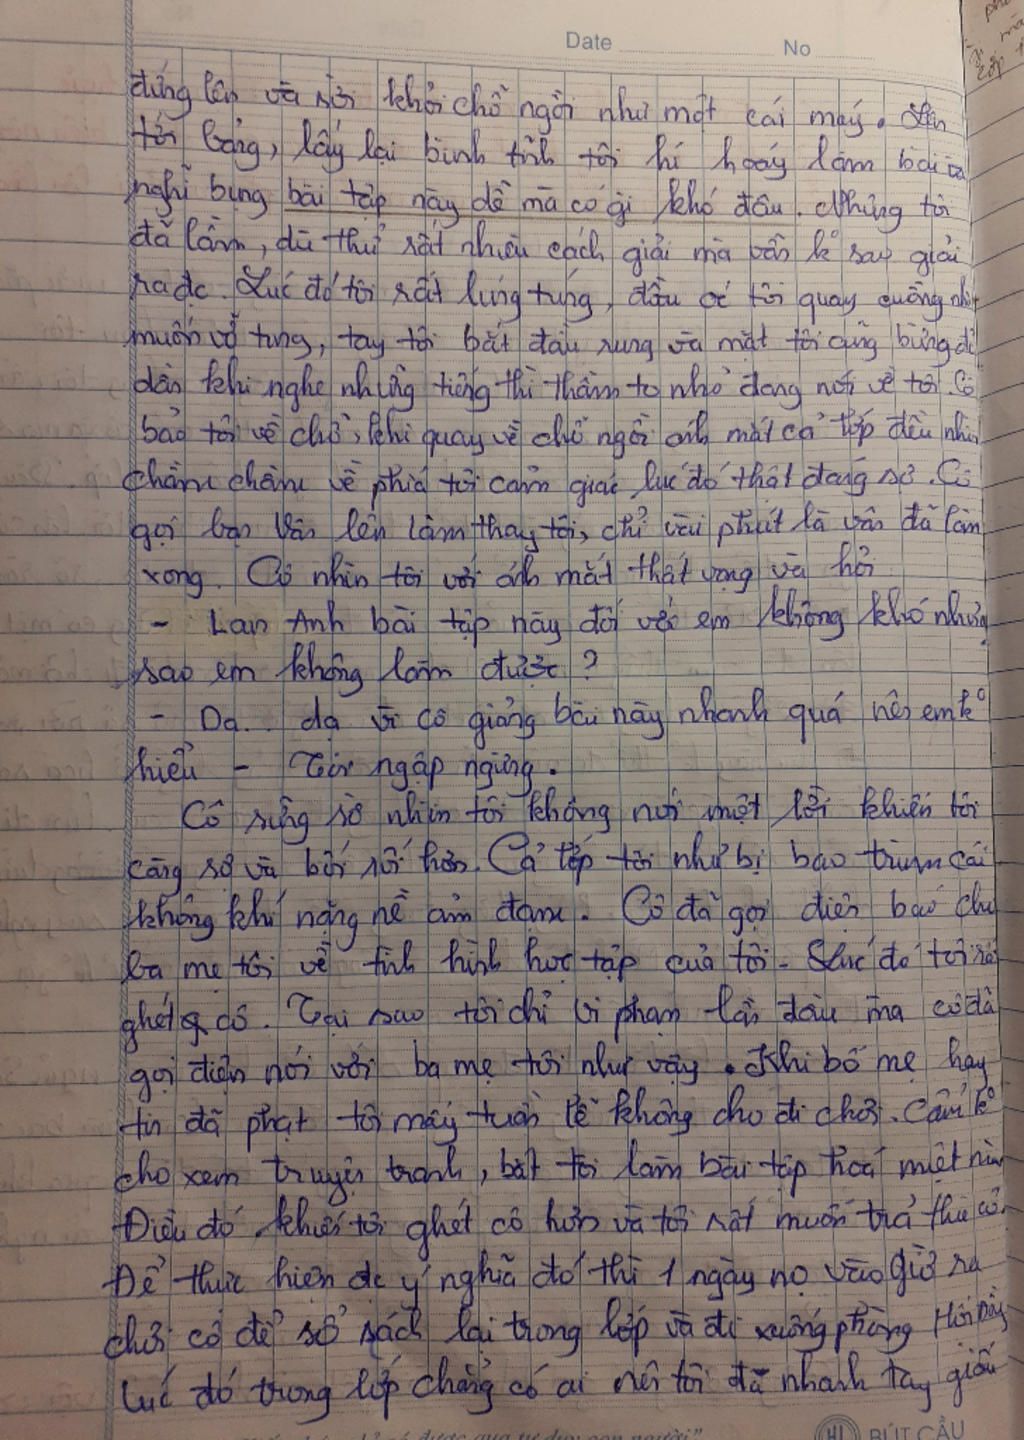 Date No
đứng lên và rời khỏi chỗ ngồi như một cái máy. Lên
tới bảng, lấy lại bình tĩnh tôi hí hoáy làm bài và
nghĩ bụng bài tập này dễ mà có gì khó đâu. Nhưng tôi
đã lầm, dù thử rất nhiều cách giải mà vẫn k sao giải
ra đc. Lúc đó tôi rất lúng túng, đầu óc tôi quay cuồng như
muốn vỡ tung, tay tôi bắt đầu rung và mặt tôi cũng bừng đỏ
dần khi nghe những tiếng thì thầm to nhỏ đang nói về tôi. Cô
bảo tôi về chỗ, khi quay về chỗ ngồi ánh mắt cả lớp đều nhìn
chằm chằm về phiá tôi cảm giác lúc đó thật đáng sợ. Cô
gọi bạn Vân lên làm thay tôi, chỉ vài phút là vân đã làm
xong. Cô nhìn tôi với ánh mắt thất vọng và hỏi
- Lan Anh bài tập này đối với em không khó nhưng
sao em không làm được ?
- Dạ.. dạ vì cô giảng bài này nhanh quá nên em k
hiểu - Tôi ngập ngừng.
Cô sững sờ nhìn tôi không nói một lời khiến tôi
càng sợ và bối rối hơn. Cả lớp tôi như bị bao trùm cái
không khí nặng nề ảm đạm. Cô đã gọi điện báo cho
ba mẹ tôi về tình hình học tập của tôi. Lúc đó tôi rất
ghét cô. Tại sao tôi chỉ vi phạm lần đầu mà cô đã
gọi điện nói với ba mẹ tôi như vậy. Khi bố mẹ hay
tin đã phạt tôi mấy tuần lễ không cho đi chơi. Cấm k
cho xem truyện tranh, bắt tôi làm bài tập hoá miệt
Điều đó khiến tôi ghét cô hơn và tôi rất muốn trả thù cô.
Để thực hiện đc ý nghĩ đó thì 1 ngày nọ vào giờ ra
chơi cô để sổ sách lại trong lớp và đi xuống phòng
Lúc đó trong lớp chẳng có ai nên tôi đã nhanh tay giấu
BÚT CẦU